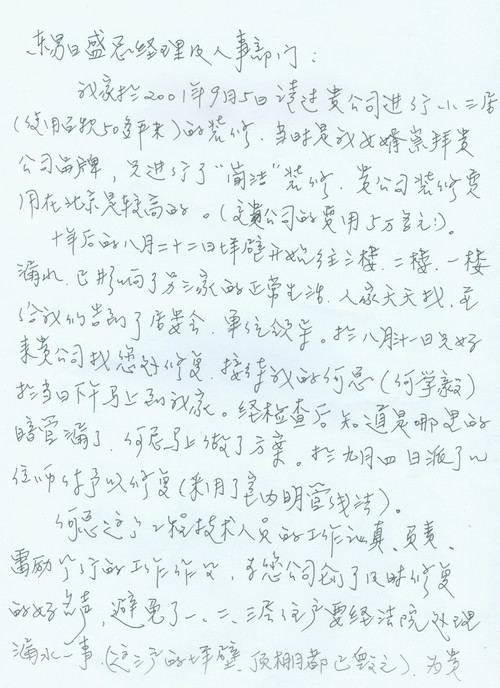 东易日盛总经理及人事部门：
我家於2001年9月5日请过贵公司进行小三居
(使用面积50多平米)的装修，当时是我女婿崇拜贵
公司品牌，只进行了"简洁"装修，贵公司装修费
用在北京是较高的。(交贵公司的费用5万多元)。
十年后的八月二十二日墙壁开始往三楼、二楼、一楼
漏水，已影响了另三家的正常生活，人家天天找，至
给我们告到了居委会、单位领导。於八月卅一日只好
来贵公司找您好修复，接待我的何总(何学毅)
於当日下午马上到我家。经检查后知道是哪里的
暗管漏了，何总马上做了方案。於九月四日派了
位师傅予以修复(采用了室内明管线法)。
何总这个工程技术人员的工作认真、负责、
雷励风行的工作作风，为您公司创了及时修复
的好名声，避免了一、二、三层住户要经法院处理
漏水一事，(这三户的墙壁、顶棚都已毁之)，为贵